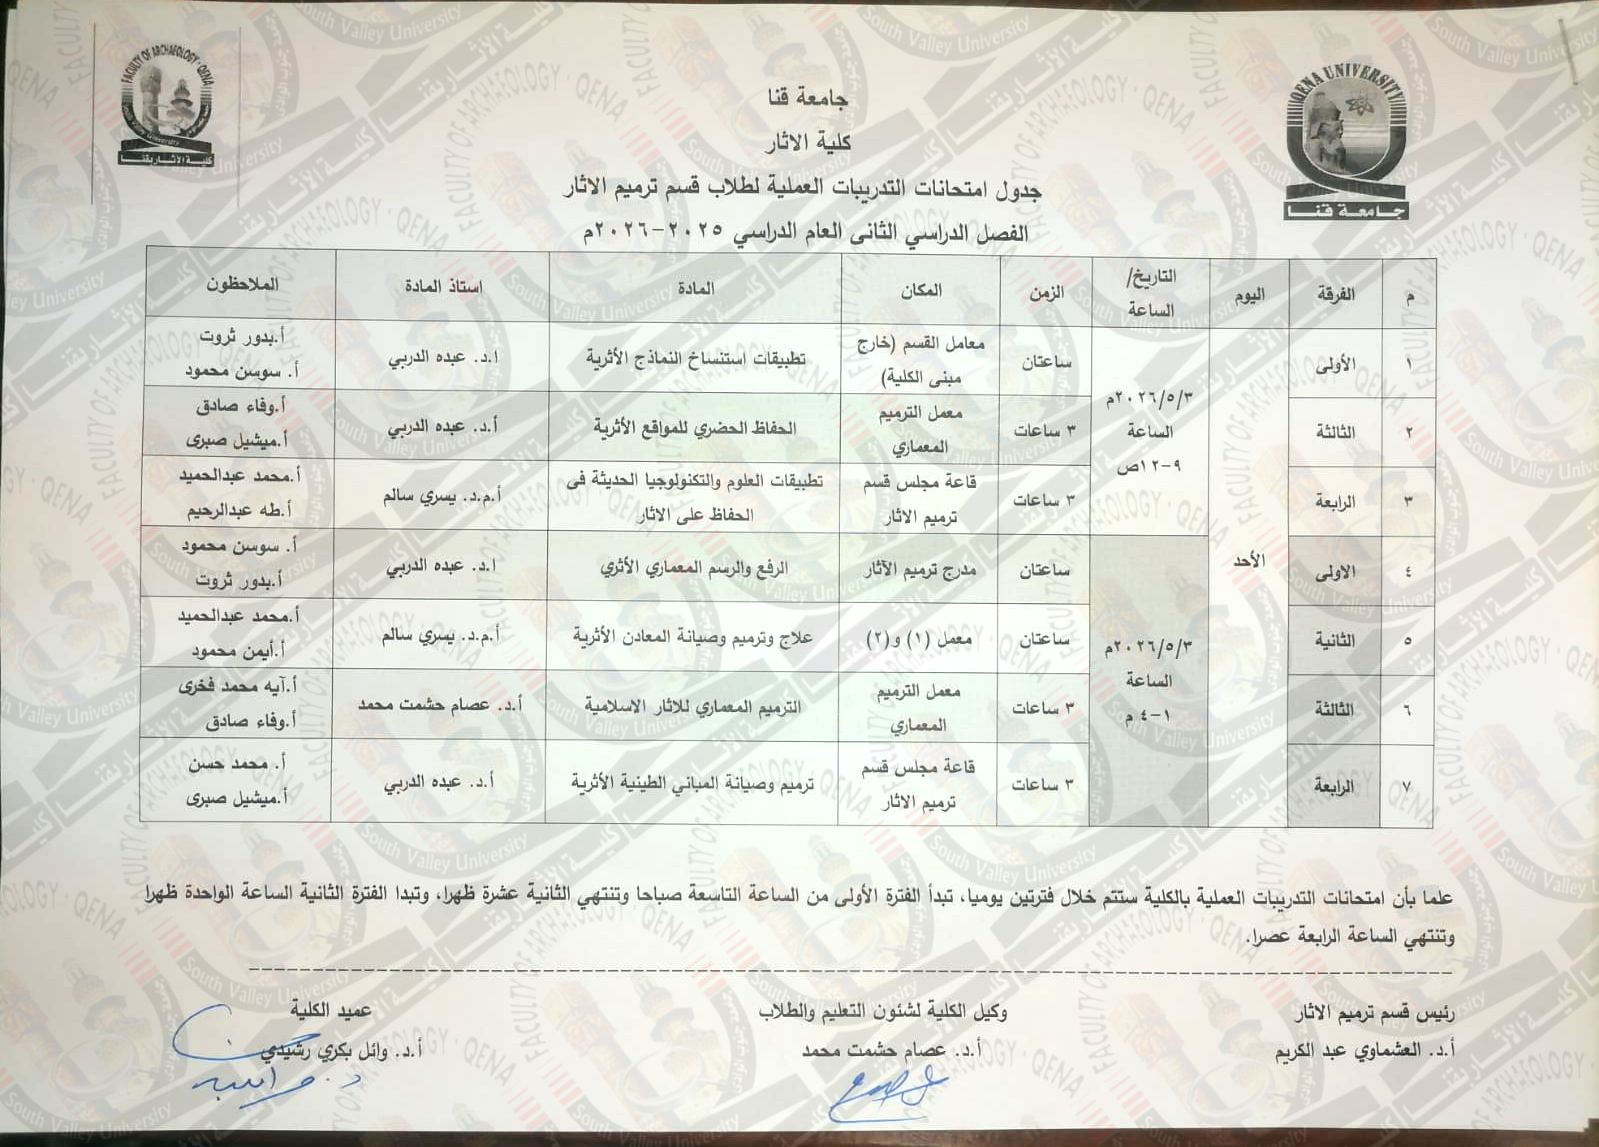 FACULTY OF ARCHAEOLOGY - QENA
South Valley University
كلية الآثار بقنا
QENA UNIVERSITY
جامعة قنا
جامعة قنا
كلية الاثار
جدول امتحانات التدريبات العملية لطلاب قسم ترميم الاثار
الفصل الدراسي الثانى العام الدراسي ٢٠٢٥-٢٠٢٦م
م الفرقة اليوم التاريخ/ الساعة الزمن المكان المادة استاذ المادة الملاحظون
١ الأولى الأحد ٢٠٢٦/٥/٣م الساعة ٩-١٢ص ساعتان معامل القسم (خارج مبنى الكلية) تطبيقات استنساخ النماذج الأثرية ا.د. عبده الدربي أ.بدور ثروت أ. سوسن محمود
٢ الثالثة ٣ ساعات معمل الترميم المعماري الحفاظ الحضري للمواقع الأثرية أ.د. عبده الدربي أ.وفاء صادق أ.ميشيل صبرى
٣ الرابعة ٣ ساعات قاعة مجلس قسم ترميم الاثار تطبيقات العلوم والتكنولوجيا الحديثة فى الحفاظ على الاثار أ.م.د. يسري سالم أ.محمد عبدالحميد أ.طه عبدالرحيم
٤ الاولى ٢٠٢٦/٥/٣م الساعة ١-٤ م ساعتان مدرج ترميم الآثار الرفع والرسم المعماري الأثري ا.د. عبده الدربي أ. سوسن محمود أ.بدور ثروت
٥ الثانية ساعتان معمل (١) و(٢) علاج وترميم وصيانة المعادن الأثرية أ.م.د. يسري سالم أ.محمد عبدالحميد أ.أيمن محمود
٦ الثالثة ٣ ساعات معمل الترميم المعماري الترميم المعماري للاثار الاسلامية أ.د. عصام حشمت محمد أ.آيه محمد فخرى أ.وفاء صادق
٧ الرابعة ٣ ساعات قاعة مجلس قسم ترميم الاثار ترميم وصيانة المباني الطينية الأثرية أ.د. عبده الدربي أ. محمد حسن أ.ميشيل صبرى
علما بأن امتحانات التدريبات العملية بالكلية ستتم خلال فترتين يوميا، تبدأ الفترة الأولى من الساعة التاسعة صباحا وتنتهي الثانية عشرة ظهرا، وتبدا الفترة الثانية الساعة الواحدة ظهرا
وتنتهي الساعة الرابعة عصرا.
رئيس قسم ترميم الاثار وكيل الكلية لشئون التعليم والطلاب عميد الكلية
أ.د. العشماوي عبد الكريم أ.د. عصام حشمت محمد أ.د. وائل بكري رشيدي